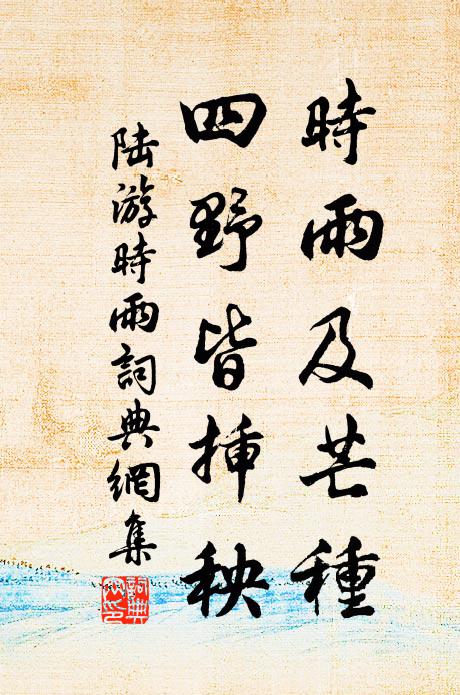 時雨及芒種
四野皆插秧
陸游時雨詞典網集